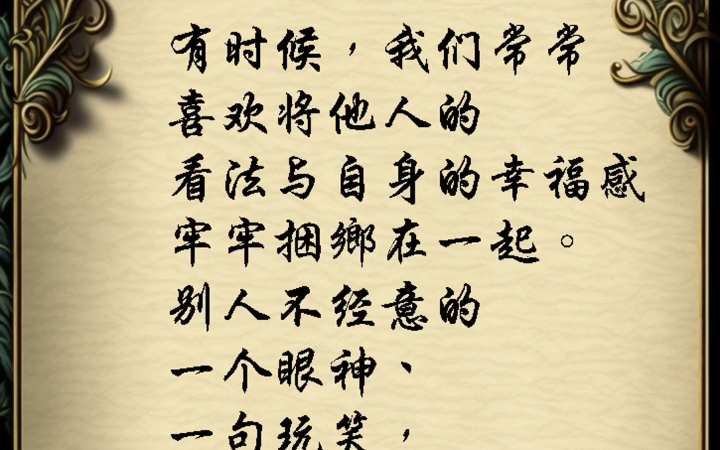 有时候，我们常常
喜欢将他人的
看法与自身的幸福感
牢牢捆鄉在一起。
别人不经意的
一个眼神、
一句玩笑，